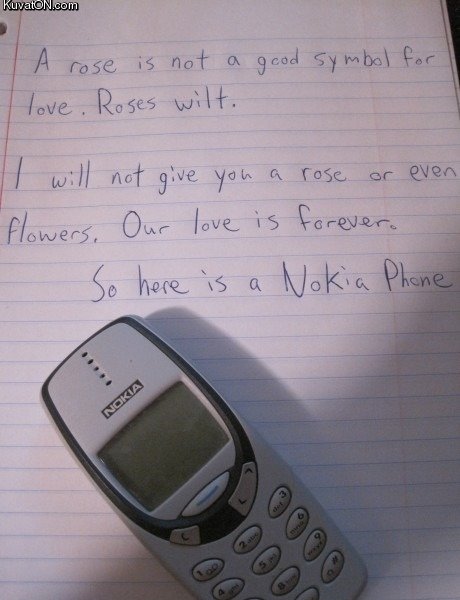 KuvatON.com
A rose is not a good symbol for
love. Roses wilt.
I will not give you a rose or even
flowers. Our love is forever.
So here is a Nokia Phone
NOKIA
C
L
3 def
2 abc
6 mno
1 oo
5 jkl
9 wxyz
4 ghi
8 tuv
#